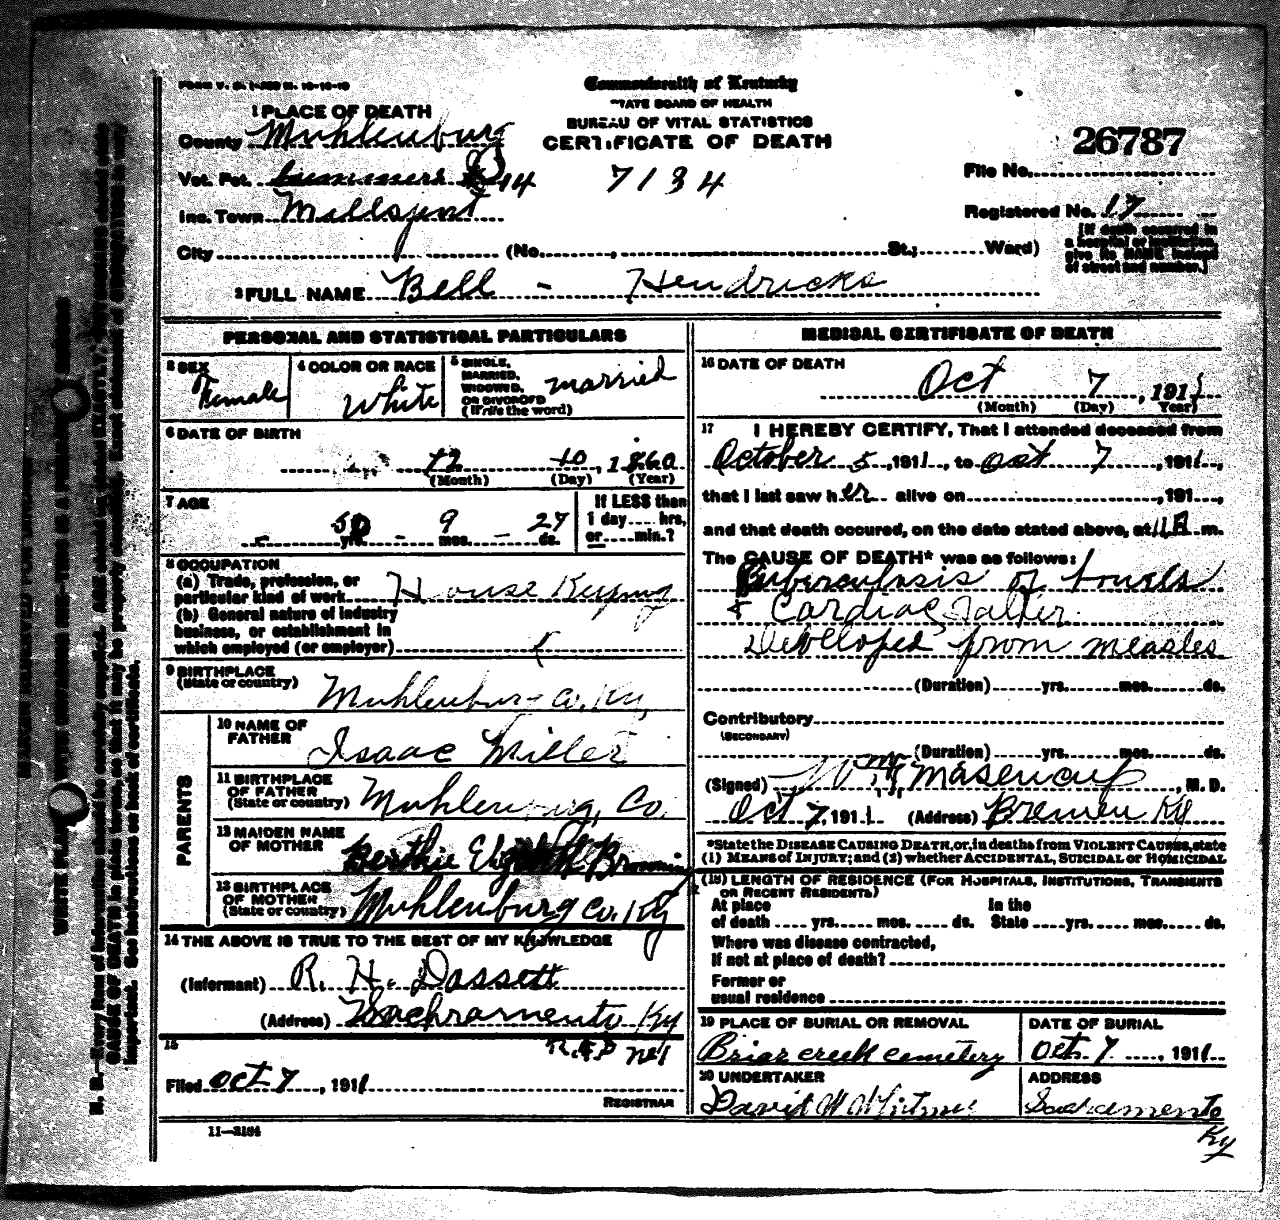 FORM V. S. 1-
Commonwealth of Kentucky
STATE BOARD OF HEALTH
BUREAU OF VITAL STATISTICS
CERTIFICATE OF DEATH
1 PLACE OF DEATH
County Muhlenburg
Vot. Pct. 14
7134
Inc. Town Millsport
City (No. , St.; Ward)
26787
File No.
Registered No. 17
[If death occurred in
a hospital or institution,
give its NAME instead
of street and number.]
2 FULL NAME Bell - Hendricks
PERSONAL AND STATISTICAL PARTICULARS
3 SEX
Female
4 COLOR OR RACE
White
5 SINGLE,
MARRIED,
WIDOWED,
OR DIVORCED
(Write the word)
married
6 DATE OF BIRTH
12 10, 1860
(Month) (Day) (Year)
7 AGE
50 yrs. - 9 mos. - 27 ds.
If LESS than
1 day hrs.
or min.?
8 OCCUPATION
(a) Trade, profession, or
particular kind of work House Keeping
(b) General nature of industry
business, or establishment in
which employed (or employer)
9 BIRTHPLACE
(State or country)
Muhlenburg Co. Ky,
PARENTS
10 NAME OF
FATHER
Isaac Miller
11 BIRTHPLACE
OF FATHER
(State or country)
Muhlenburg, Co.
12 MAIDEN NAME
OF MOTHER
13 BIRTHPLACE
OF MOTHER
(State or country)
Muhlenburg Co. Ky
14 THE ABOVE IS TRUE TO THE BEST OF MY KNOWLEDGE
(Informant) R. H. Dossett
(Address) Sachramento Ky
R.F.D no 1
15
Filed Oct 7, 1911
REGISTRAR
11—3184
MEDICAL CERTIFICATE OF DEATH
16 DATE OF DEATH
Oct 7, 1911
(Month) (Day) Year)
17 I HEREBY CERTIFY, That I attended deceased from
October 5, 1911, to Oct 7, 1911,
that I last saw her alive on , 191 ,
and that death occured, on the date stated above, at 11 A m.
The CAUSE OF DEATH* was as follows:
Tuberculosis of bowels
& Cardiac
Developed from measles
(Duration) yrs. mos. ds.
Contributory
(SECONDARY)
(Duration) yrs. mos. ds.
(Signed) , M. D.
Oct 7, 1911 (Address) Bremen Ky
*State the DISEASE CAUSING DEATH, or, in deaths from VIOLENT CAUSES, state
(1) MEANS OF INJURY; and (2) whether ACCIDENTAL, SUICIDAL or HOMICIDAL
(18) LENGTH OF RESIDENCE (FOR HOSPITALS, INSTITUTIONS, TRANSIENTS
OR RECENT RESIDENTS)
At place
of death yrs. mos. ds.
In the
State yrs. mos. ds.
Where was disease contracted,
if not at place of death?
Former or
usual residence
19 PLACE OF BURIAL OR REMOVAL
Briar creek cemetery
DATE OF BURIAL
Oct. 7, 1911
20 UNDERTAKER
David W Whitmer
ADDRESS
Sachramento
Ky